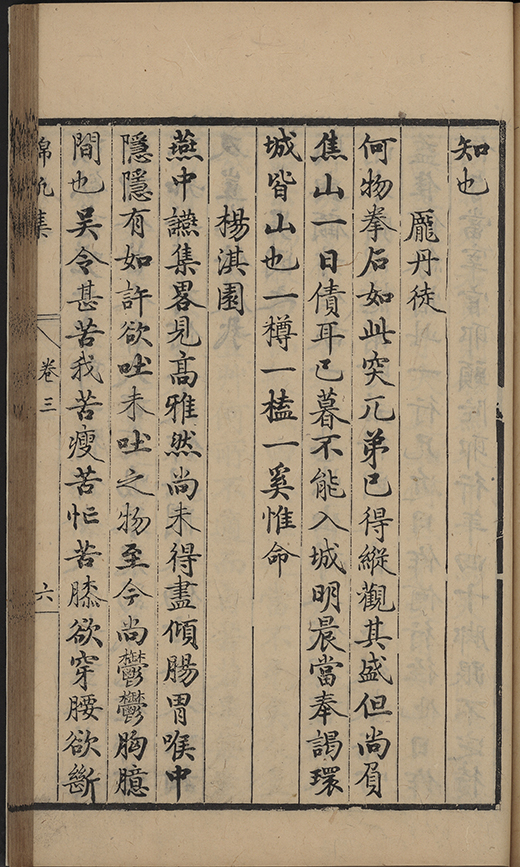 知也
龐丹徒
何物拳石如此突兀弟已得縱觀其盛但尚負
焦山一日債耳已暮不能入城明晨當奉謁環
城皆山也一樽一榼一奚惟命
楊淇園
燕中讌集畧見高雅然尚未得盡傾腸胃喉中
隱隱有如許欲吐未吐之物至今尚鬱鬱胸臆
間也吳令甚苦我苦瘦苦忙苦膝欲穿腰欲斷
錦帆集
卷三
六